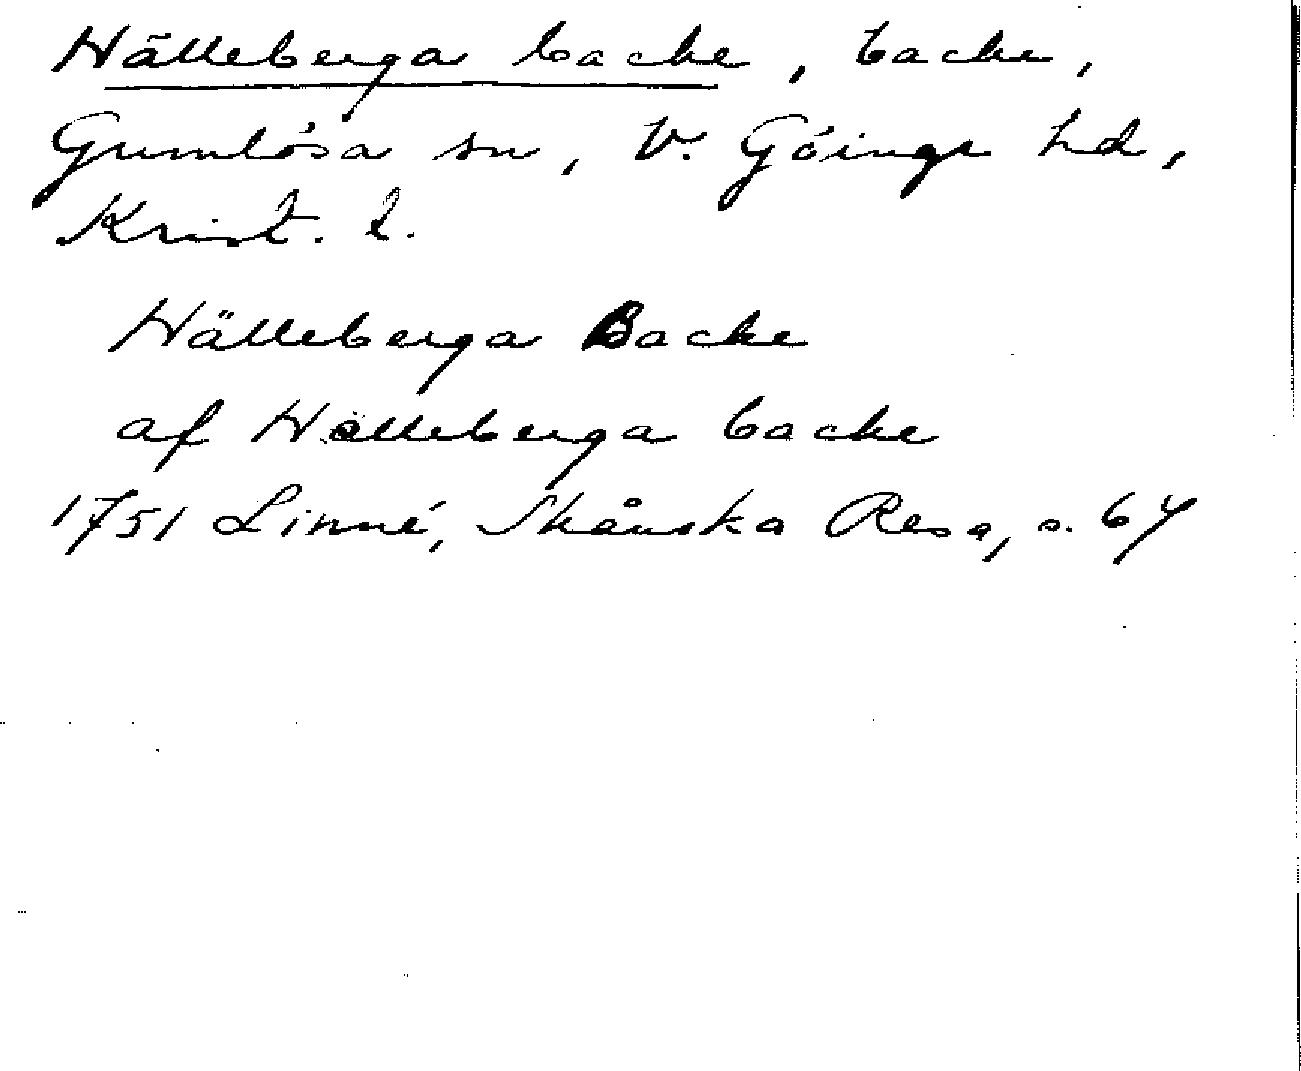 Hälleberga backe, backe,
Gumlösa sn, V. Göinge hd,
Krist. l.
Hälleberga Backe
af Hälleberga backe
1751 Linné, Skånska Resa, s. 64